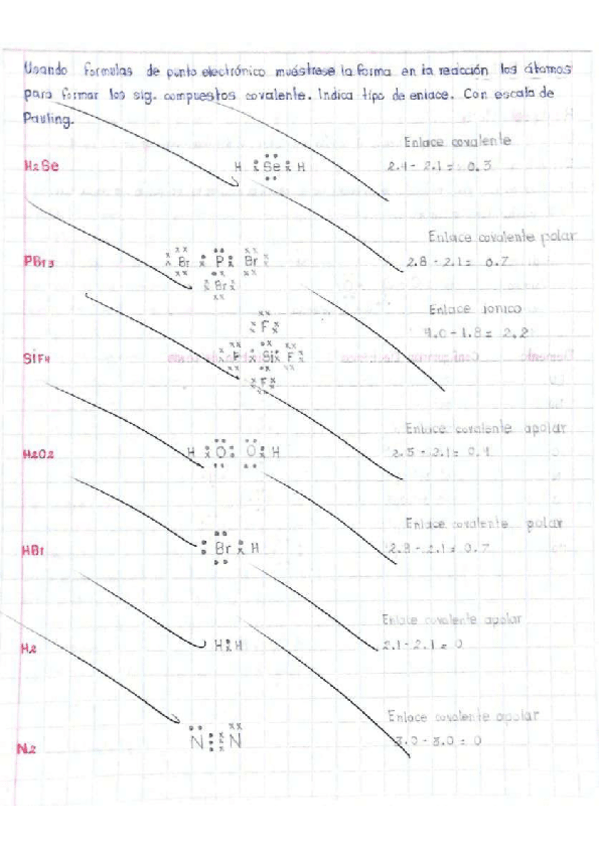 Usando formulas de punto electrónico muéstrese la forma en la reacción los átomos
para formar los sig. compuestos covalente. Indica tipo de enlace. Con escala de
Pauling.
Enlace covalente
H2Se H Se H 2.4 - 2.1 = 0.3
Enlace covalente polar
PBr3 Br P Br 2.8 - 2.1 = 0.7
Br
Enlace ionico
F 4.0 - 1.8 = 2.2
SiF4 F Si F
F
Enlace covalente apolar
H2O2 H O O H 2.5 - 2.1 = 0.4
Enlace covalente polar
HBr Br H 2.8 - 2.1 = 0.7
Enlace covalente apolar
H2 H H 2.1 - 2.1 = 0
Enlace covalente apolar
N2 N N 3.0 - 3.0 = 0